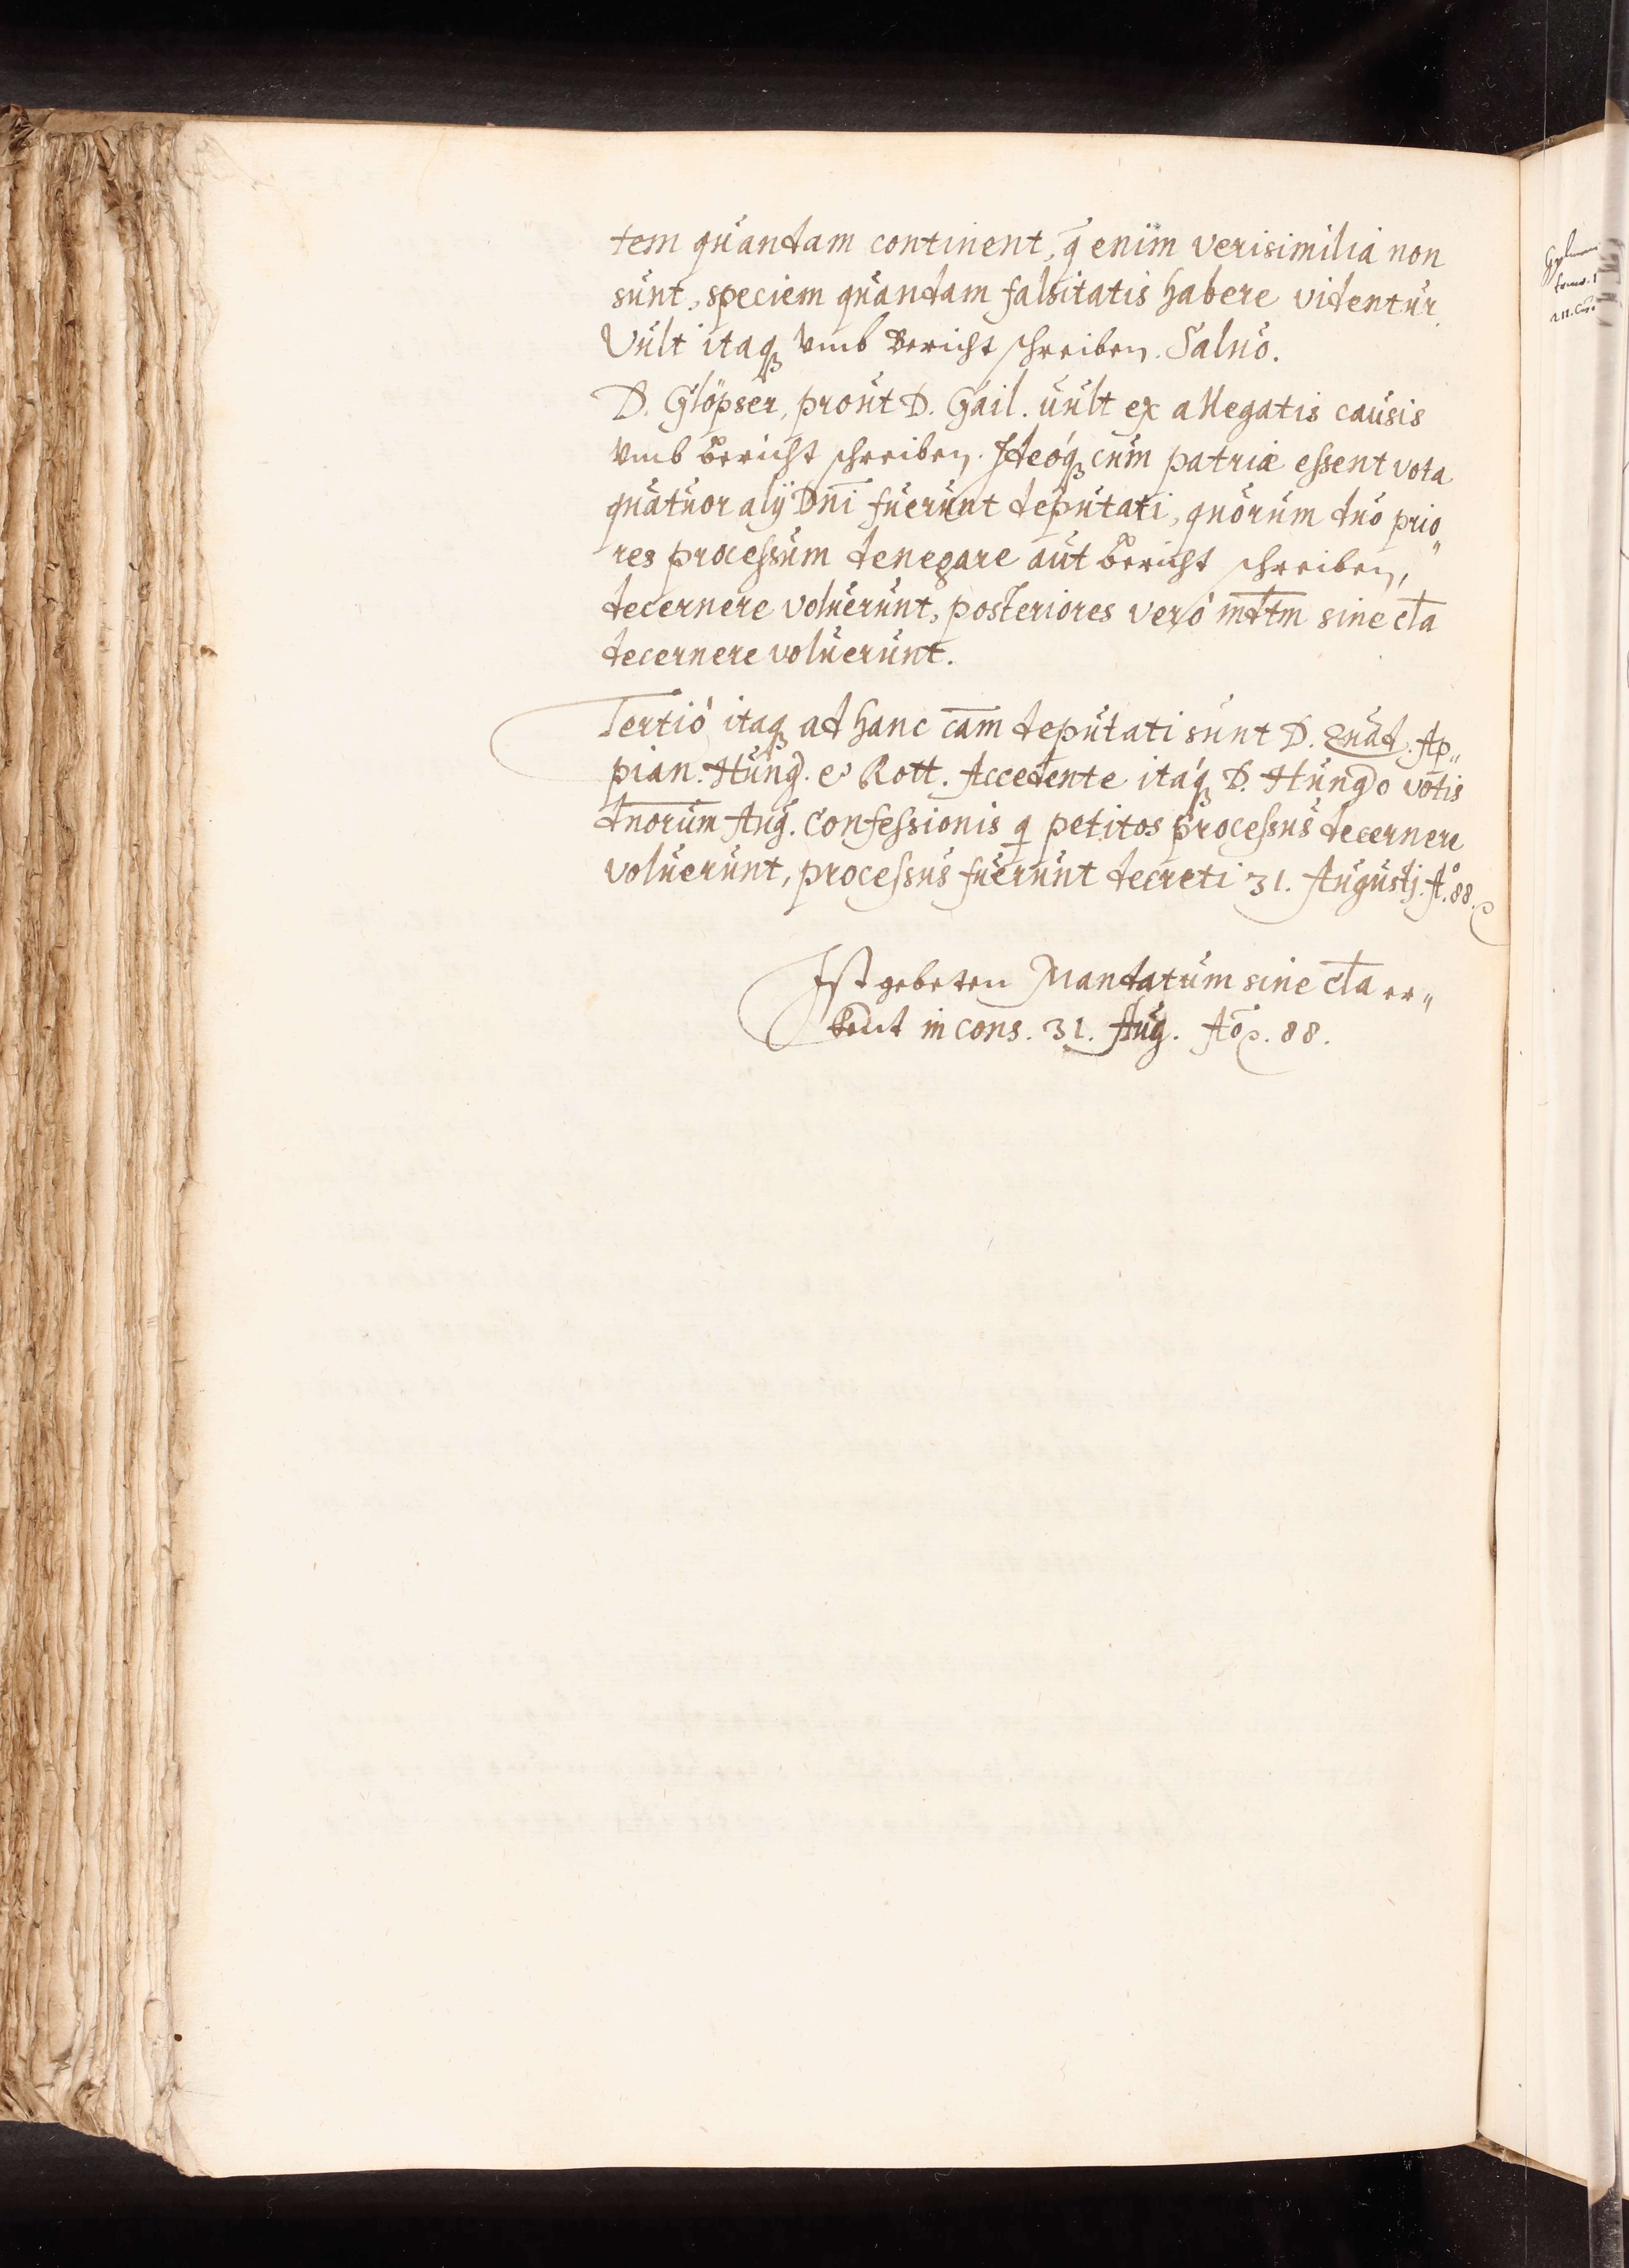 tem quandam continent, q̄ enim verisimilia non
sunt, speciem quandam falsitatis habere videntur
Vult itaq₃ vmb Bericht schreiben. Saluo.
D. Glöpser, prout D. Gail. uult ex allegatis causis
vmb bericht schreiben. Ideoq₃ cum patriæ essent vota
quatuor alij Dn̄i fuerunt deputati, quorum duo prio„
res processum denegare aut bericht schreiben,
decernere voluerunt, posteriores verò md̄tm sine cl̄a
decernere voluerunt.
Tertiò itaq₃ ad hanc cām deputati sunt D. Quad. Ap„
pian. Hung. & Rott. Accedente itaq₃ D. Hungo votis
dnorum Aug. Confessionis q petitos processus decernere
voluerunt, processus fuerunt decreti 31. Augustj. Aº. 88.
Ist gebeten Mandatum sine cl̄a er„
kent in cons. 31. Aug. Aō. 88.